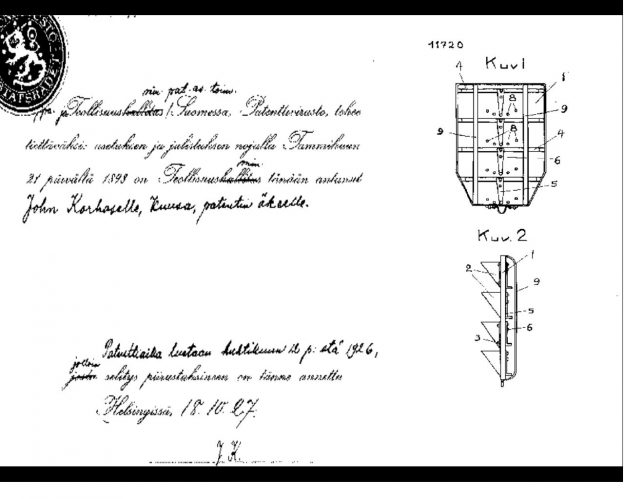 min. pat. as. toim.
ppa. ja Teollisuushallitus, Suomessa, Patenttivirasto, tekee
tiettäväksi: asetuksen ja julistuksen nojalla Tammikuun
min.
21 päivältä 1898 on Teollisuushallitus tänään antanut
John Korhoselle, Kuusa, patentin äkeelle.
Patenttiaika luetaan huhtikuun 12 p:stä 1926,
jolloin
jonka selitys piirustuksineen on tänne annettu
Helsingissä, 18. 10. 27.
J. K.
11720
Kuv.1
4
8
1
9
9
8
4
6
5
Kuv. 2
1
2
9
5
6
3